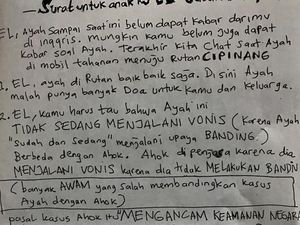 Surat untuk anak
EL, Ayah sampai saat ini belum dapat kabar darimu
di inggris. mungkin kamu belum juga dapat
kabar soal Ayah. Terakhir kita chat saat Ayah
di mobil tahanan menuju Rutan CIPINANG
1. EL, ayah di Rutan baik baik saja. Disini Ayah
malah punya banyak Doa untuk kamu dan keluarga.
2. EL, kamu harus tau bahwa Ayah ini
TIDAK SEDANG MENJALANI VONIS (karena Ayah
"sudah dan sedang" menjalani upaya BANDING)
Berbeda dengan Ahok. Ahok di penjara karena dia
MENJALANI VONIS karena dia tidak MELAKUKAN BANDIN
(banyak AWAM yang salah membandingkan kasus
Ayah dengan Ahok)
pasal kasus Ahok itu "MENGANCAM KEAMANAN NEGARA